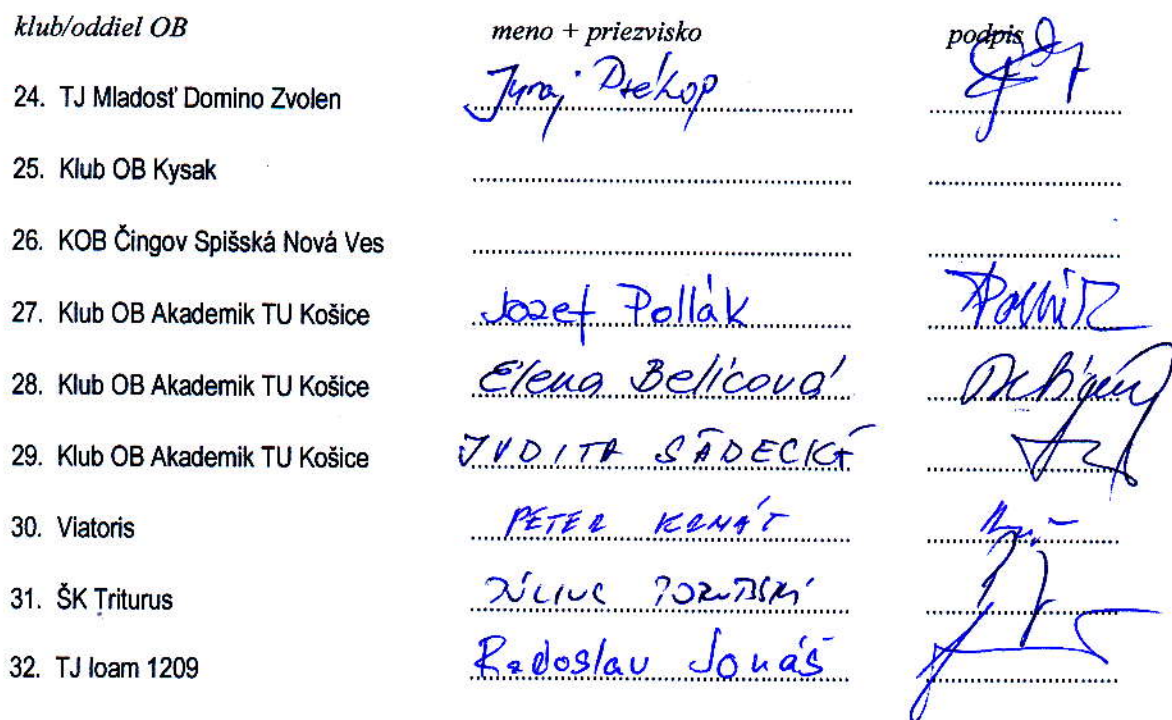 klub/oddiel OB meno + priezvisko podpis
24. TJ Mladosť Domino Zvolen Juraj Prékop
25. Klub OB Kysak
26. KOB Čingov Spišská Nová Ves
27. Klub OB Akademik TU Košice Jozef Pollák
28. Klub OB Akademik TU Košice Elena Belicová
29. Klub OB Akademik TU Košice JUDITA SÁDECKÁ
30. Viatoris PETER
31. ŠK Triturus JÚLIUS
32. TJ loam 1209 Radoslav Jonáš